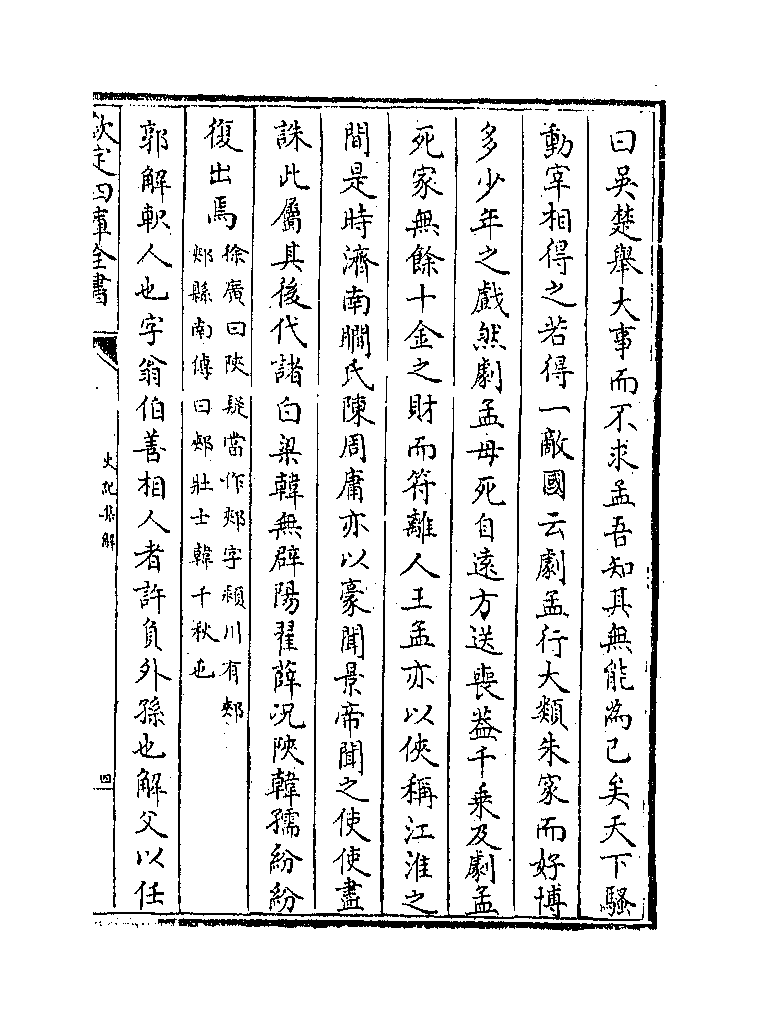 曰吳楚舉大事而不求孟吾知其無能為已矣天下騷
動宰相得之若得一敵國云劇孟行大類朱家而好博
多少年之戲然劇孟母死自遠方送喪葢千乗及劇孟
死家無餘十金之財而符離人王孟亦以俠稱江淮之
間是時濟南瞯氏陳周庸亦以豪聞景帝聞之使使盡
誅此屬其後代諸白梁韓無辟陽翟薛况陜韓孺紛紛
復出焉
徐廣曰陜疑當作郟字頴川有郟
郟縣南傳曰郟壯士韓千秋也
郭解軹人也字翁伯善相人者許負外孫也解父以任
欽定四庫全書
史記集解
四